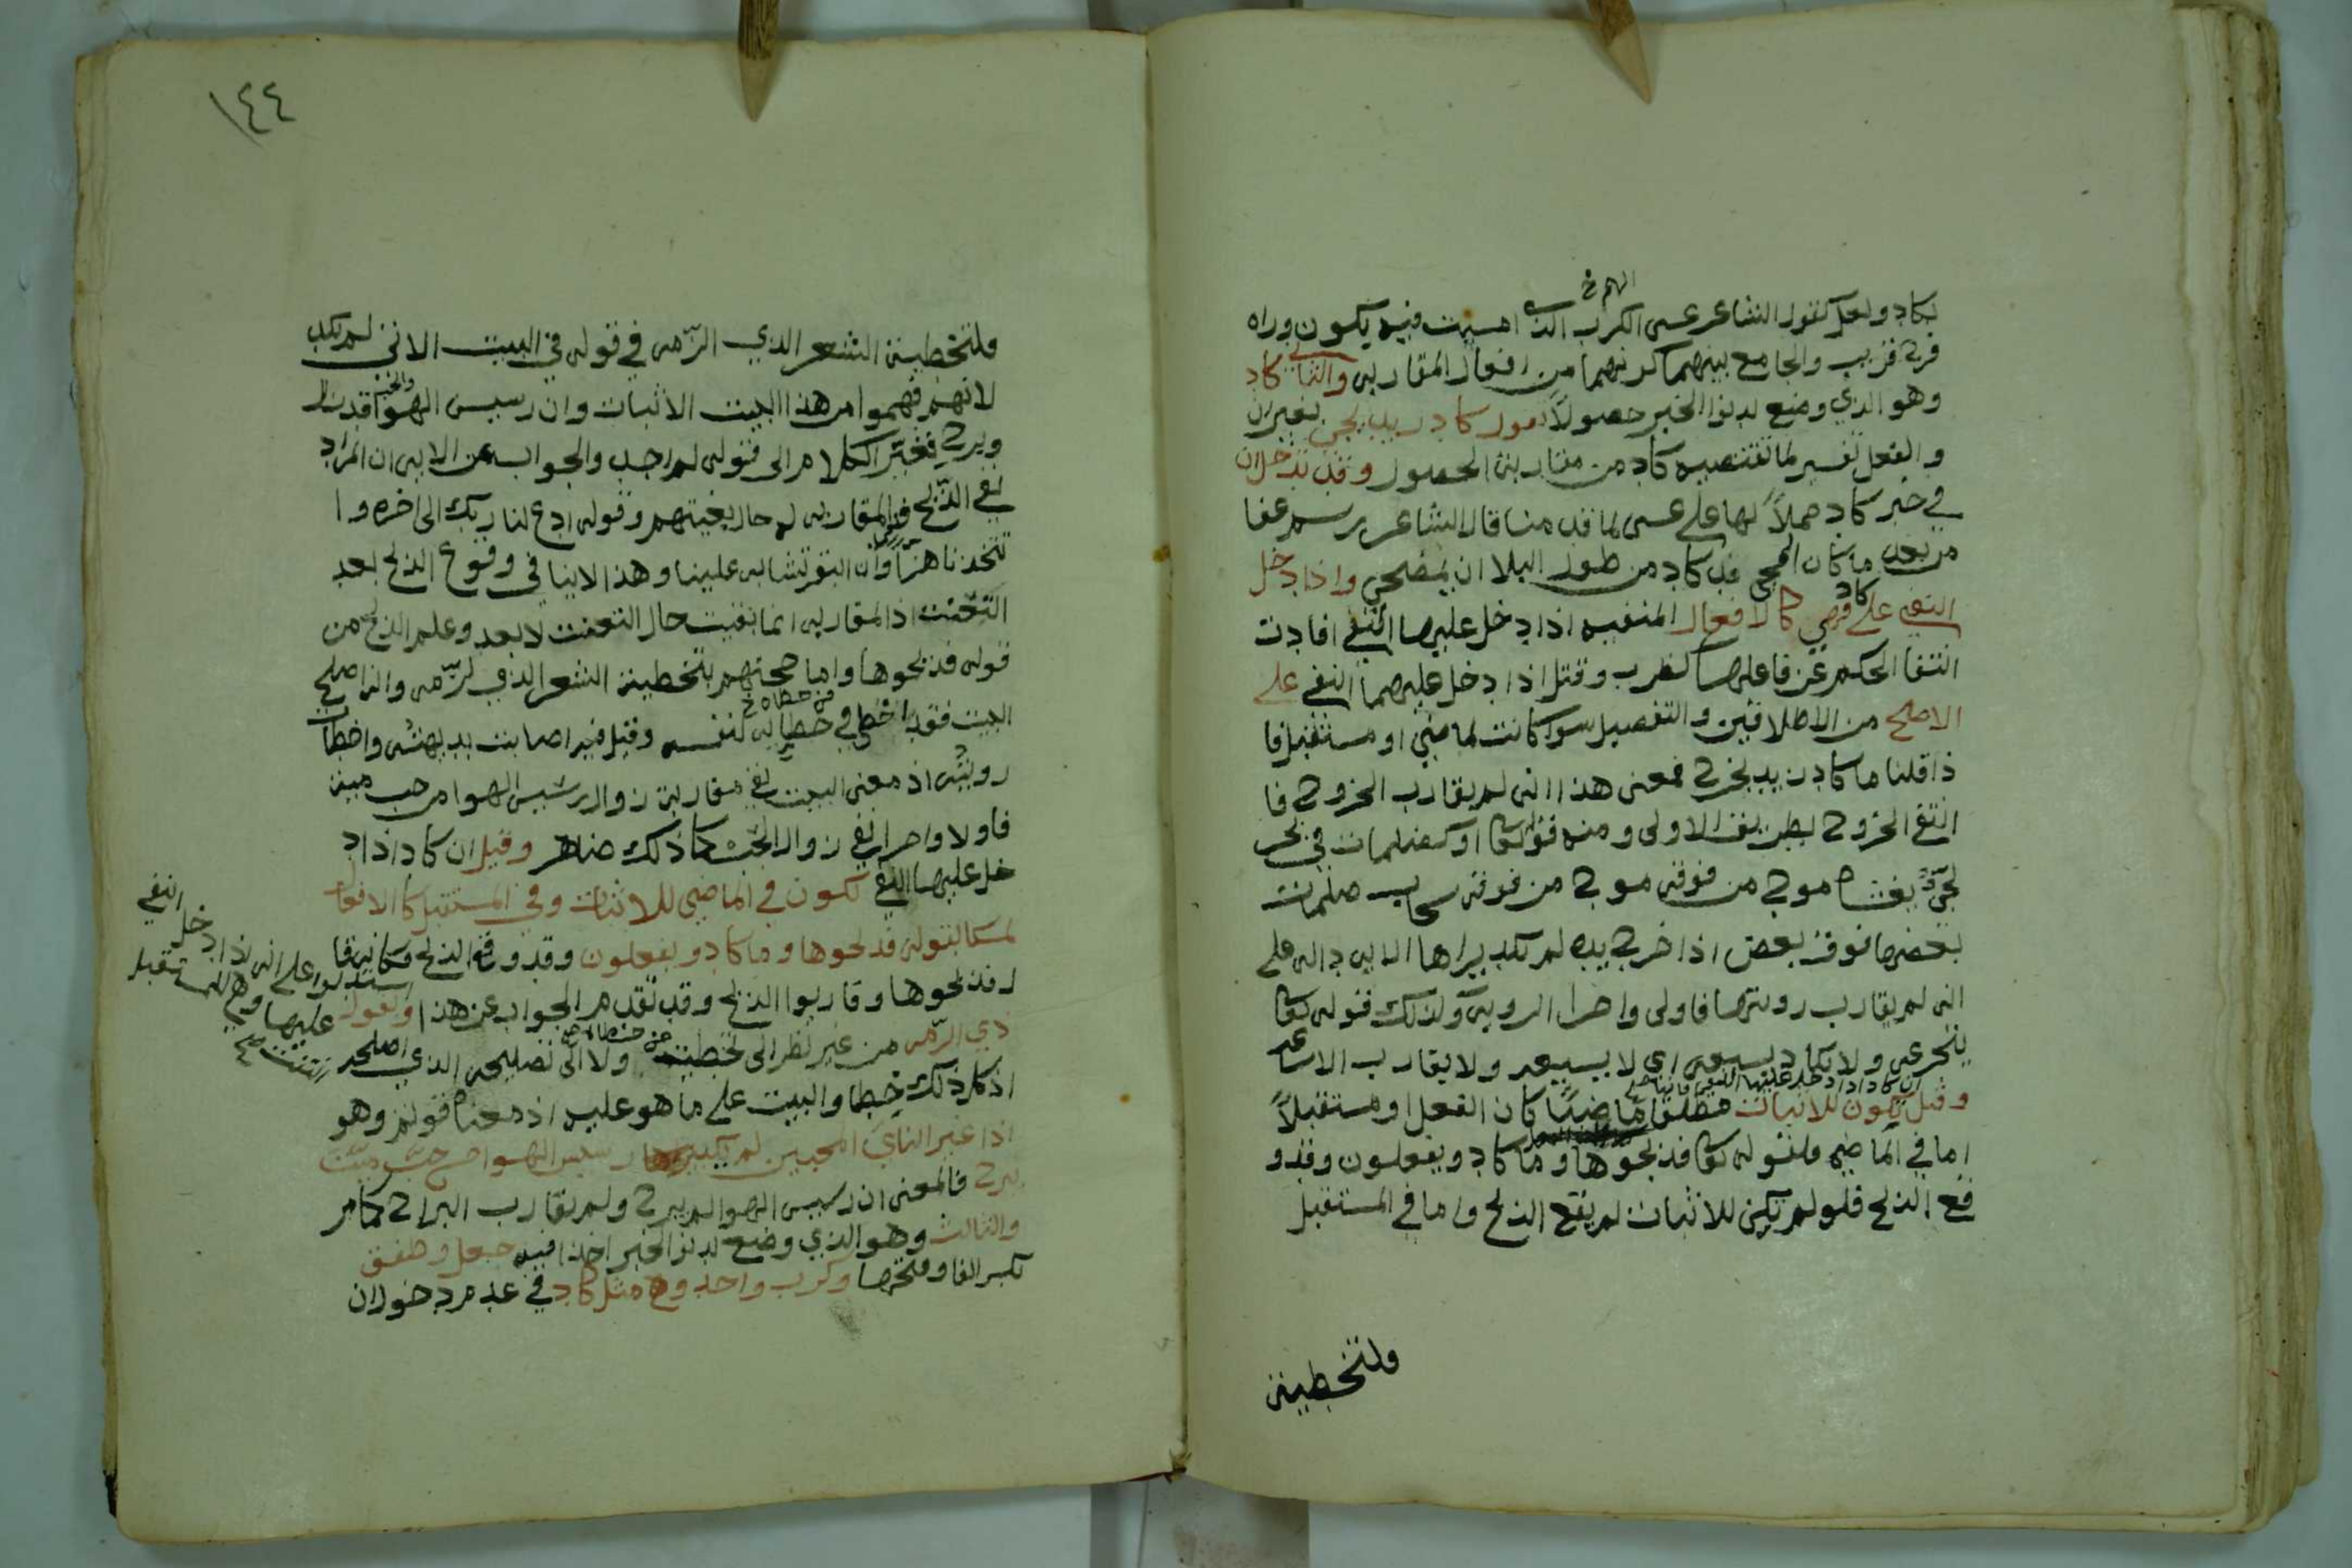 بكاد ولعل كقول الشاعر عسى الكرب الذي امسيت فيه يكون وراه
الهم خ
فرج قريب والجامع بينهما كونهما من افعال المقاربه والثاني كاد
وهو الذي وضع لدنو الخبر حصولا نحو كاد زيد يجي بغير ان
والفعل تفسير لما تقتضيه كاد من مقاربة الحصول وقد تدخل ان
في خبر كاد حملا لها على عسى لما قدمنا قال الشاعر رسم عفا
من بعد ما كان امحى قد كاد من طول البلا ان يمضحي واذا دخل
النفي على كاد فهي كالافعال المنفيه اذا دخل عليها النفي افادت
انتفا الحكم عن فاعلها كضرب وقتل اذا دخل عليهما النفي على
الاصح من الاطلاقين والتفصيل سوا كانت لماضي او مستقبل فا
ذا قلنا ما كاد زيد يخرج فمعنى هذا انه لم يقارب الخروج فا
انتفى الخروج بطريق الاولى ومنه قوله تعالى او كظلمات في بحر
لجي يغشاه موج من فوقه موج من فوقه سحاب ظلمات
بعضها فوق بعض اذا اخرج يده لم يكد يراها الايه داله على
انه لم يقارب رويتها فاولى واحرا الرويه وكذلك قوله تعالى
يتجرعه ولا يكاد يسيغه اي لا يسيغه ولا يقارب الاساغه
ان كاد اذا دخل عليها النفي فانها
وقيل يكون للاثبات مطلقا ماضيا كان الفعل او مستقبلا
اما في الماضي فلقوله تعالى فذبحوها وما كادو يفعلون وقد و
قع الذبح فلو لم يكن للاثبات لم يقع الذبح واما في المستقبل
ولتخطية
١٤٤
ولتخطية الشعر الذي الرمه في قوله في البيت الاتي لم يكد
لانهم فهموا من هذا البيت الاثبات وان رسيس الهوا قد زال
ويرح فغير الكلام الى قوله لم اجد والجواب عن الايه ان المراد
نفي الذبح والمقاربه له حال بغيتهم وقولهم ادع لنا ربك الى اخره وا
تتخذنا هزوا وان البقر تشابه علينا وهذا لا ينافي وقوع الذبح بعد
التعنت اذ المقاربه انما نفيت حال التعنت لا بعد وعلم الذبح من
قوله فذبحوها واما حجتهم بتخطية الشعر الذي الرمه وانه اصلح
البيت فقد اخطى في خطايه لنفسه وقيل فيه اصابت بديهته واخطات
من خطاه خ
رويته اذ معنى البيت نفي مقاربة زوال رسيس الهوا من حب مية
فاولا واحرا نفي زوال الحب كما ذلك ظاهر وقيل ان كاد اذا د
خل عليها النفي تكون في الماضي للاثبات وفي المستقبل كالافعال
تمسكا بقوله فذبحوها وما كادو يفعلون وقد وقع الذبح فكانه قا
ل فذبحوها وقاربوا الذبح وقد تقدم الجواب عن هذا وبقول
استدلوا على انه اذا دخل النفي
عليها وهي للمستقبل
ذي الرمه من غير نظر الى تخطيته ولا الى تصليحه الذي اصلحه
اذ كل ذلك خطا والبيت على ما هو عليه اذ معناه قولهم وهو
اذا غير الناي المحبين لم يكد رسيس الهوا من حب مية
يبرح فالمعنى ان رسيس الهوا لم يبرح ولم يقارب البراح كما مر
والثالث وهو الذي وضع لدنو الخبر اخذا فيه جعل وطفق
بكسر الفا وفتحها وكرب واخذ وهي مثل كاد في عدم دخول ان